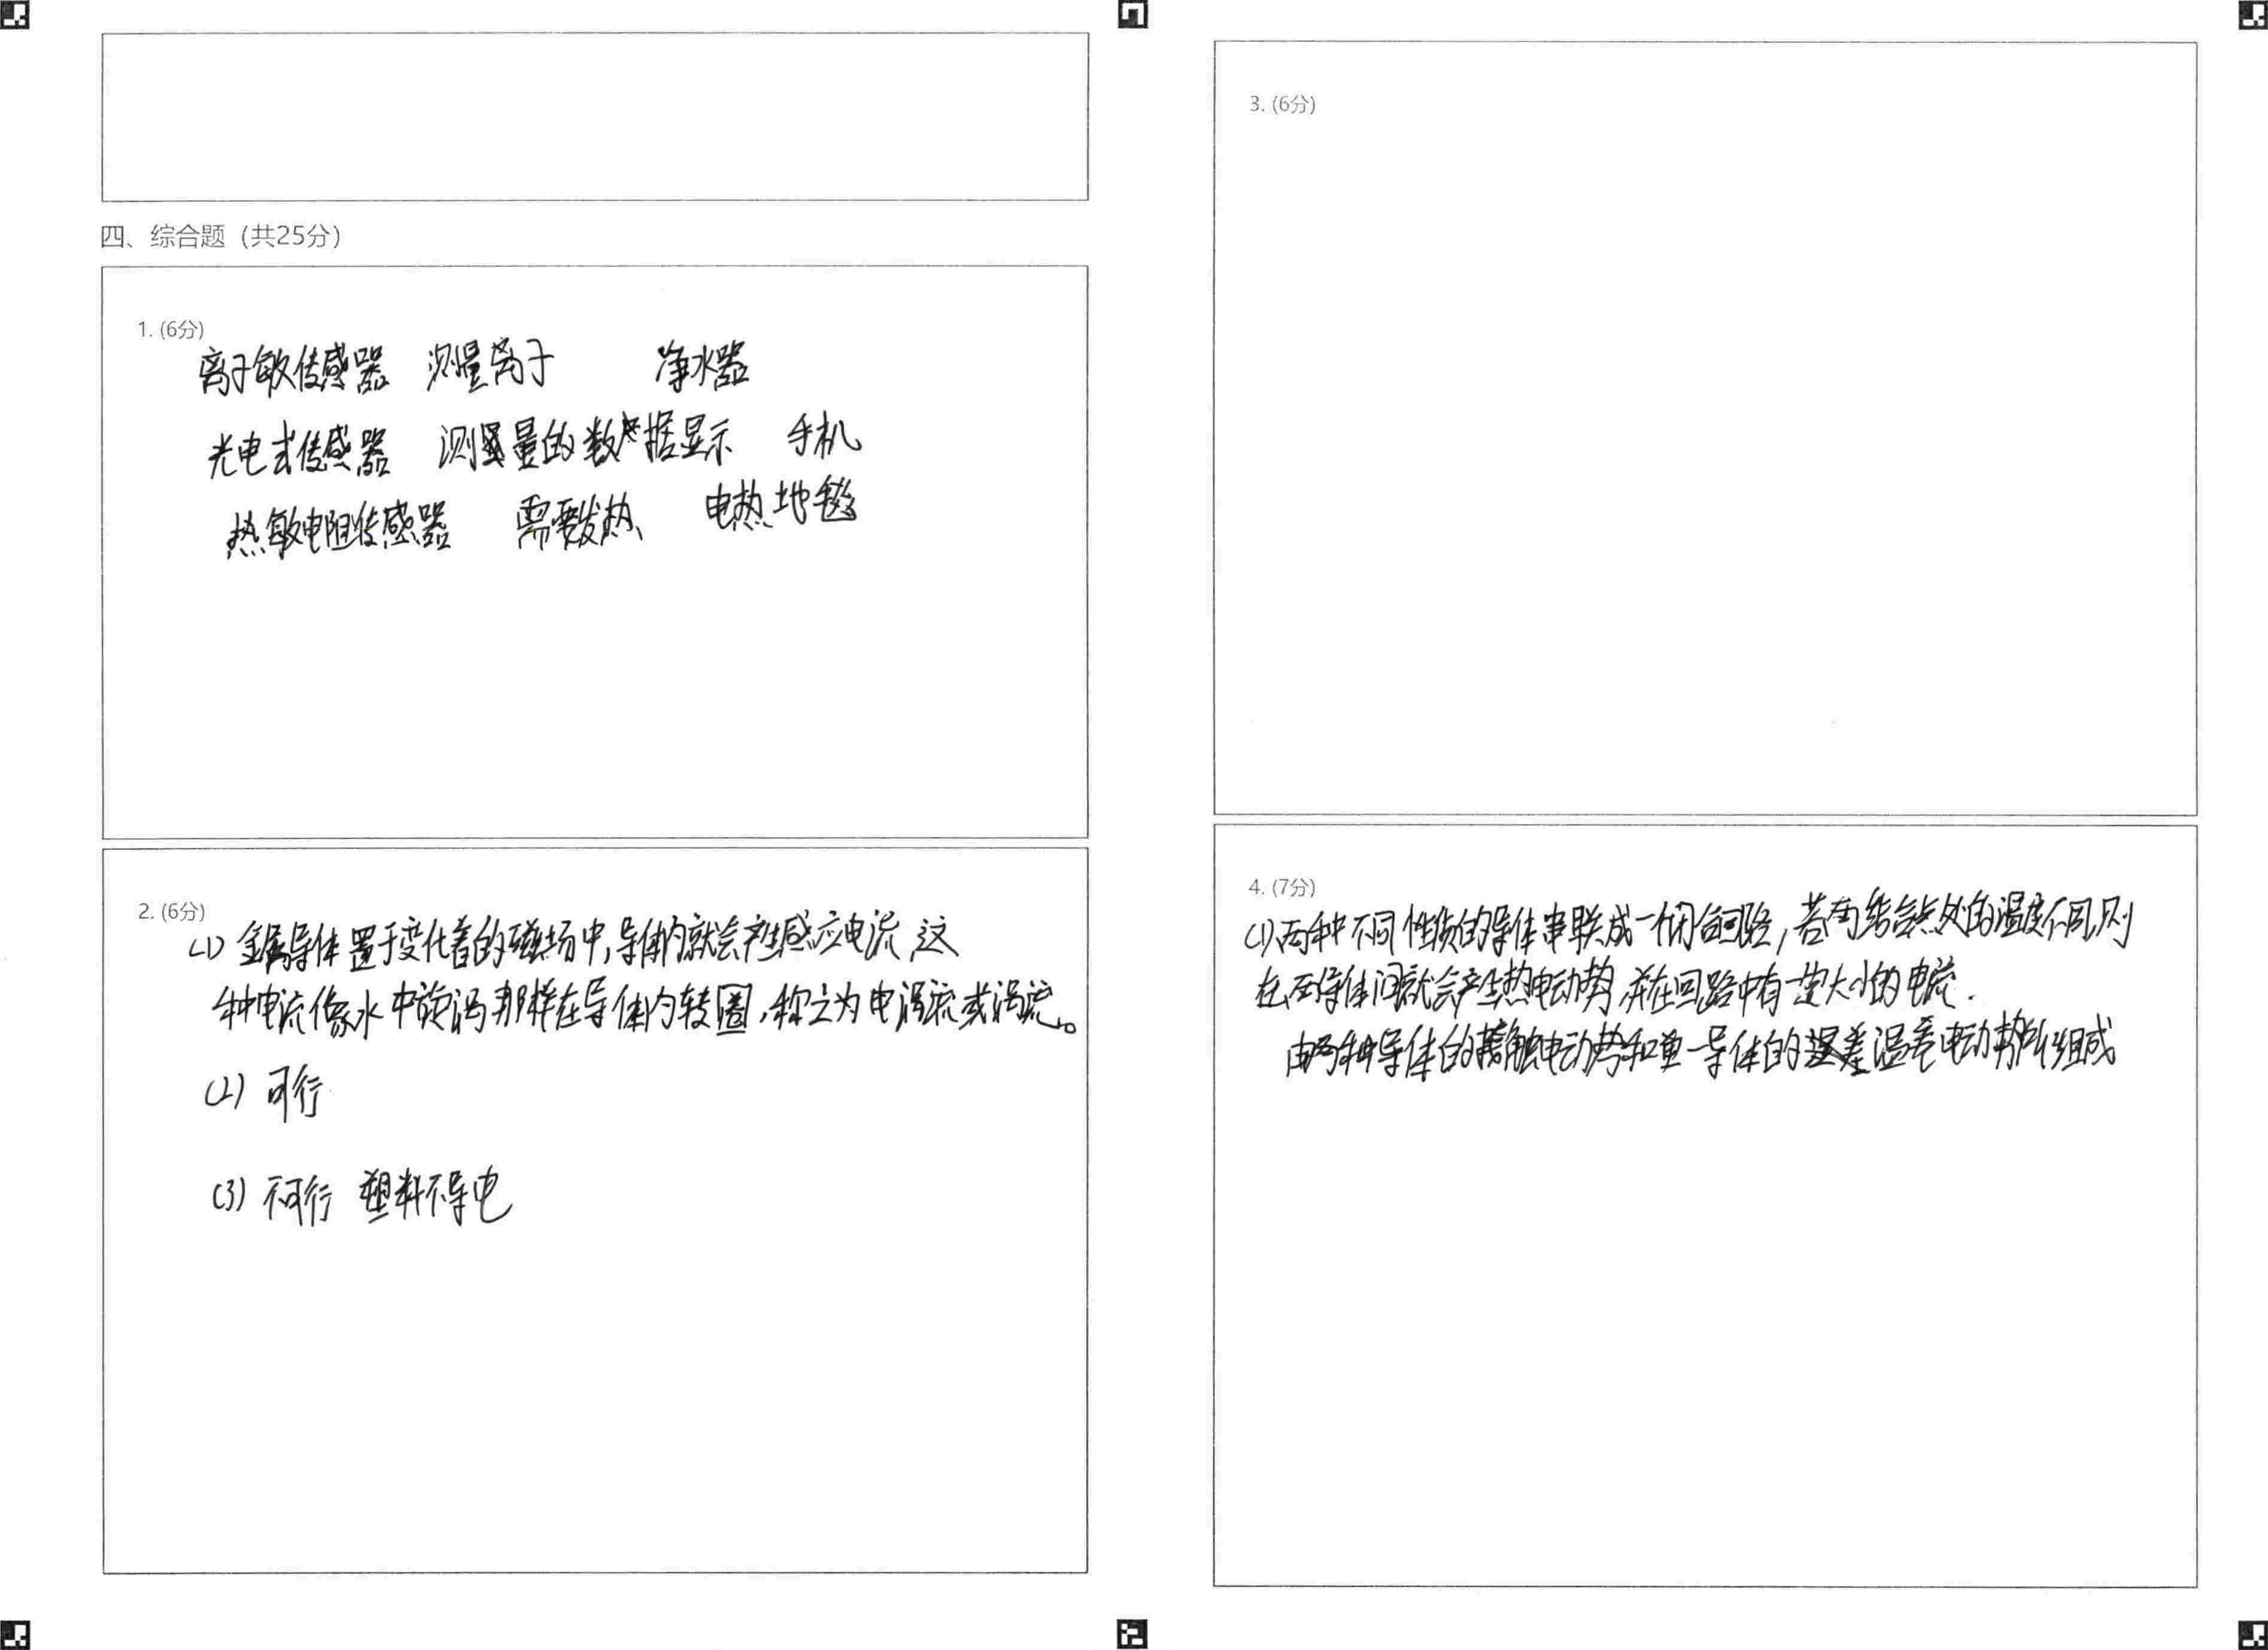 四、综合题（共25分）
1. (6分)
离子敏传感器 测量离子 净水器
光电式传感器 测量的数据显示 手机
热敏电阻传感器 需要发热 电热地毯
2. (6分)
(1) 金属导体置于变化着的磁场中,导体内就会产生感应电流,这
种电流像水中旋涡那样在导体内转圈,称之为电涡流或涡流。
(2) 可行
(3) 不可行 塑料不导电
3. (6分)
4. (7分)
(1)两种不同性质的导体串联成一闭合回路,若两结合点处的温度不同,则
在两导体间就会产生热电动势,并在回路中有一定大小的电流.
由两种导体的接触电动势和单一导体的温差电动势所组成